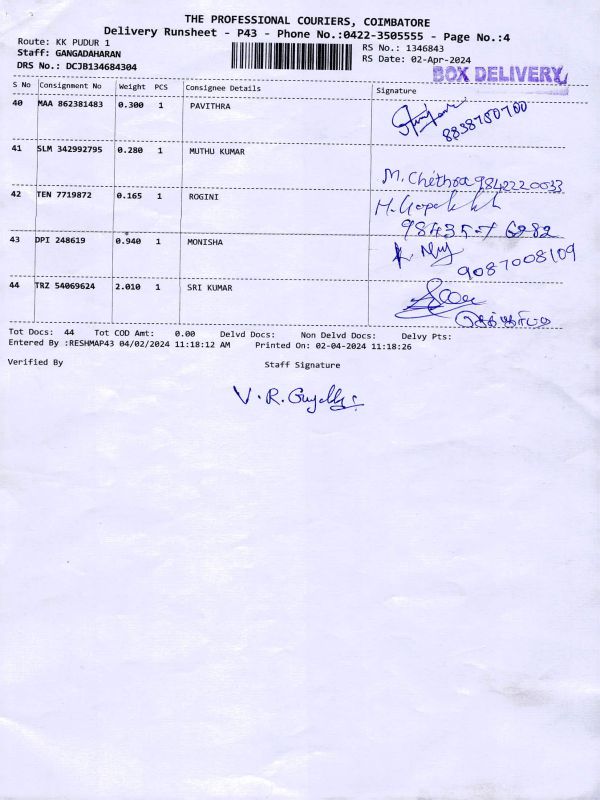 THE PROFESSIONAL COURIERS, COIMBATORE
Delivery Runsheet - P43 - Phone No.:0422-3505555 - Page No.:4
Route: KK PUDUR 1 RS No.: 1346843
Staff: GANGADAHARAN RS Date: 02-Apr-2024
DRS No.: DCJB134684304 BOX DELIVERY
S No Consignment No Weight PCS Consignee Details Signature
40 MAA 862381483 0.300 1 PAVITHRA
8838750700
41 SLM 342992795 0.280 1 MUTHU KUMAR
M. Chithra 9842220033
42 TEN 7719872 0.165 1 ROGINI
98435-7 6282
43 DPI 248619 0.940 1 MONISHA
9087008109
44 TRZ 54069624 2.010 1 SRI KUMAR
Tot Docs: 44 Tot COD Amt: 0.00 Delvd Docs: Non Delvd Docs: Delvy Pts:
Entered By :RESHMAP43 04/02/2024 11:18:12 AM Printed On: 02-04-2024 11:18:26
Verified By Staff Signature
V.R.